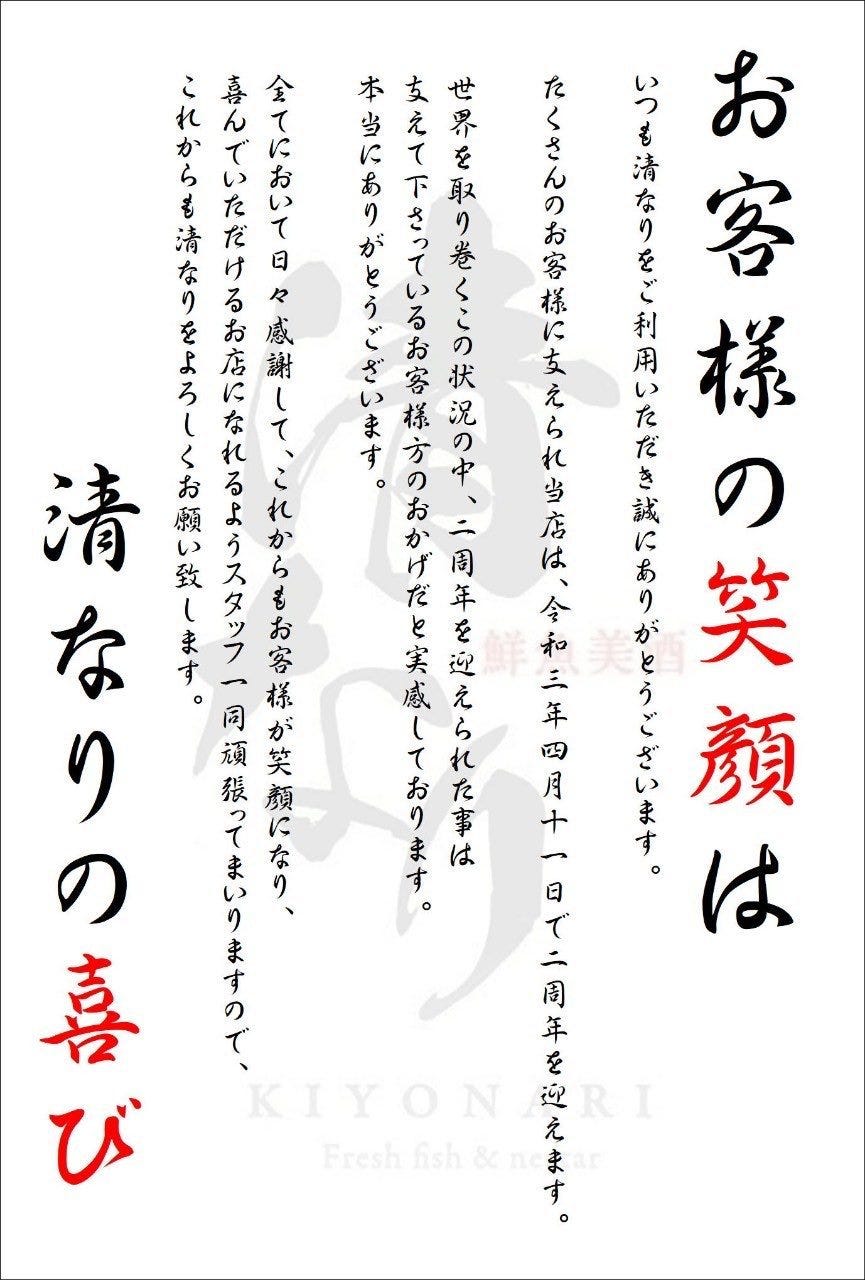 お客様の笑顔は
いつも清なりをご利用いただき誠にありがとうございます。
たくさんのお客様に支えられ当店は、令和三年四月十一日で二周年を迎えます。
世界を取り巻くこの状況の中、二周年を迎えられた事は
支えて下さっているお客様方のおかげだと実感しております。
本当にありがとうございます。
全てにおいて日々感謝して、これからもお客様が笑顔になり、
喜んでいただけるお店になれるようスタッフ一同頑張ってまいりますので、
これからも清なりをよろしくお願い致します。
清なりの喜び
清なり
鮮魚美酒
KIYONARI
Fresh fish & nectar